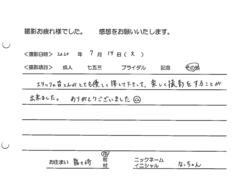 撮影お疲れ様でした。 感想をお願いいたします。
<撮影日時> 2020 年 7 月 19 日 ( )
<撮影項目> 成人 七五三 ブライダル 記念 その他
スタッフの皆さんがとても優しく接して下さって、楽しく撮影をすることが
出来ました。 ありがとうございました
お住まい 市 町 村 ニックネーム イニシャル なっちゃん